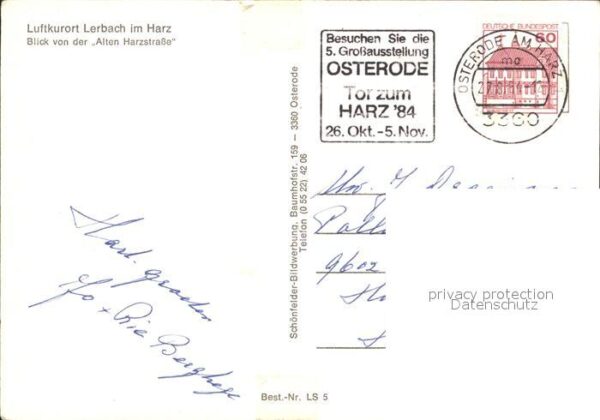 Luftkurort Lerbach im Harz
Blick von der „Alten Harzstraße"
Besuchen Sie die
5. Großausstellung
OSTERODE
Tor zum
HARZ '84
26. Okt. - 5. Nov.
DEUTSCHE BUNDESPOST
60
OSTERODE AM HARZ
mg
3360
Schönfelder-Bildwerbung, Baumhofstr. 159 — 3360 Osterode
Telefon (0 55 22) 42 06
9602
Hart. groeten
Jo + Rie
privacy protection
Datenschutz
Best.-Nr. LS 5